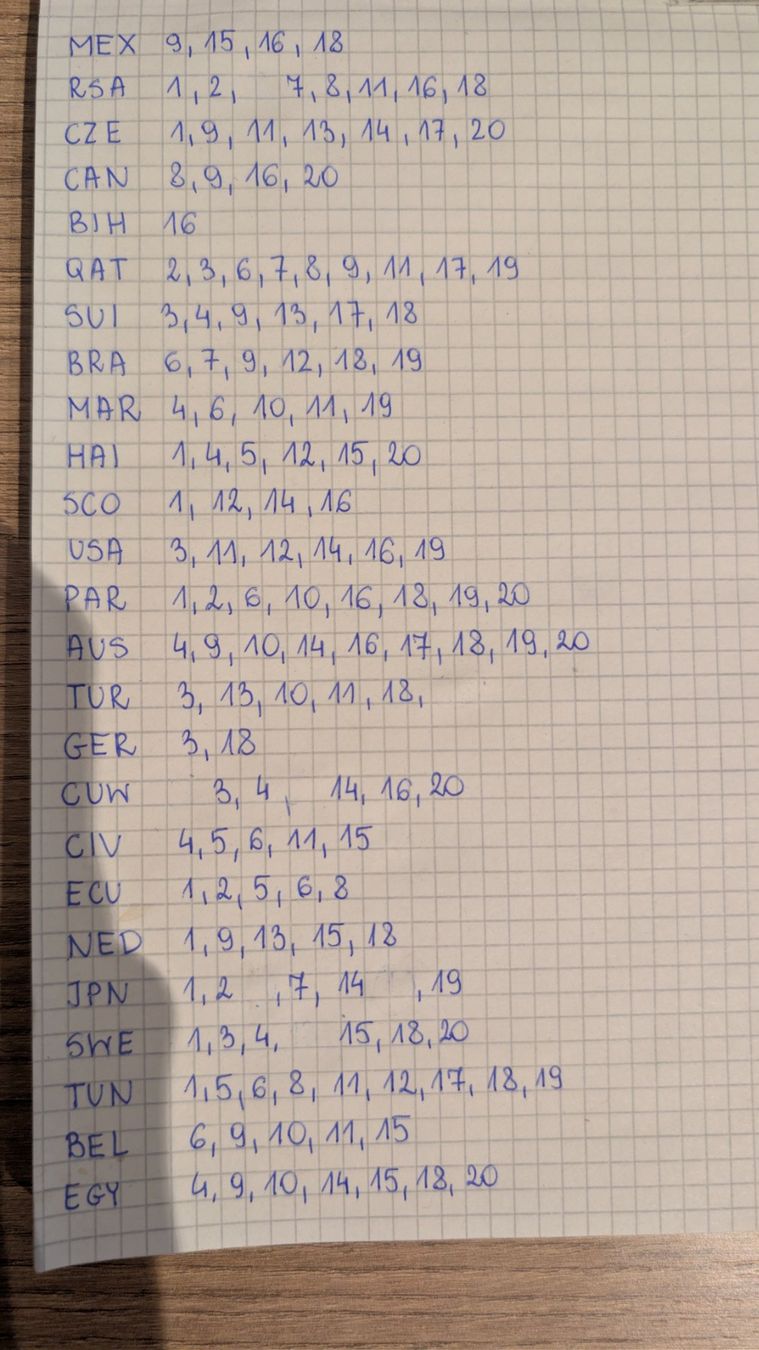 MEX 9, 15, 16, 18
RSA 1, 2, 7, 8, 11, 16, 18
CZE 1, 9, 11, 13, 14, 17, 20
CAN 8, 9, 16, 20
BIH 16
QAT 2, 3, 6, 7, 8, 9, 11, 17, 19
SUI 3, 4, 9, 13, 17, 18
BRA 6, 7, 9, 12, 18, 19
MAR 4, 6, 10, 11, 19
HAI 1, 4, 5, 12, 15, 20
SCO 1, 12, 14, 16
USA 3, 11, 12, 14, 16, 19
PAR 1, 2, 6, 10, 16, 18, 19, 20
AUS 4, 9, 10, 14, 16, 17, 18, 19, 20
TUR 3, 13, 10, 11, 18,
GER 3, 18
CUW 3, 4, 14, 16, 20
CIV 4, 5, 6, 11, 15
ECU 1, 2, 5, 6, 8
NED 1, 9, 13, 15, 18
JPN 1, 2 , 7, 14 , 19
SWE 1, 3, 4, 15, 18, 20
TUN 1, 5, 6, 8, 11, 12, 17, 18, 19
BEL 6, 9, 10, 11, 15
EGY 4, 9, 10, 14, 15, 18, 20